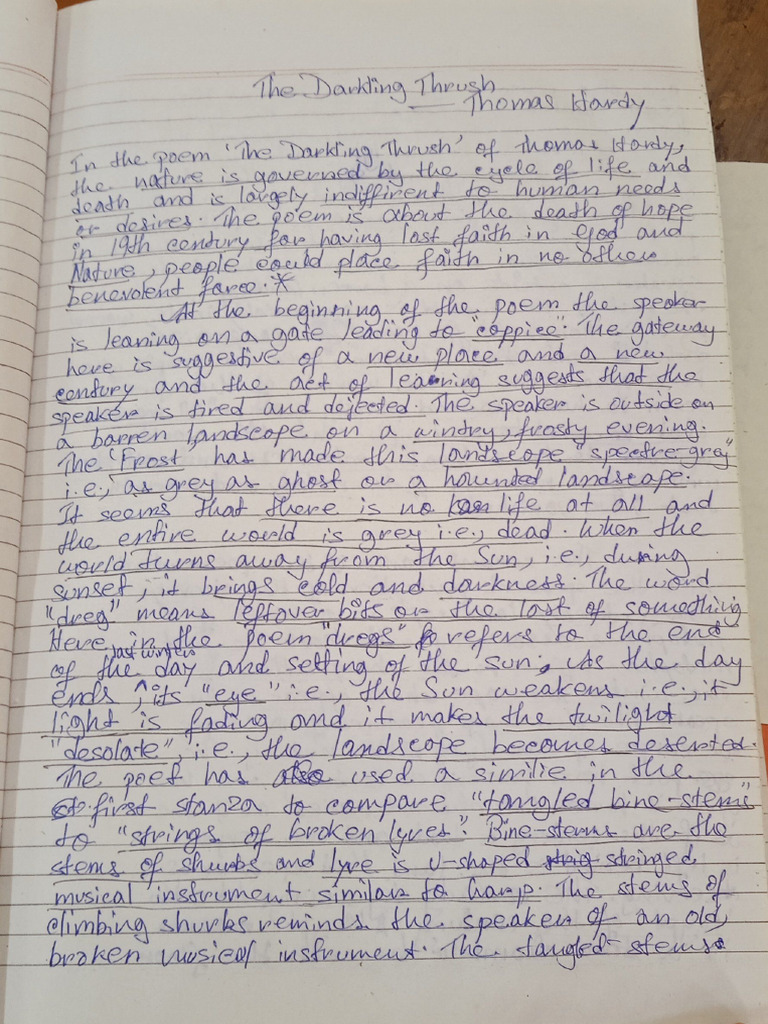 The Darkling Thrush
— Thomas Hardy
In the poem 'The Darkling Thrush' of Thomas Hardy,
the nature is governed by the cycle of life and
death and is largely indiffirent to human needs
or desires. The poem is about the death of hope
in 19th century for having lost faith in God and
Nature, people could place faith in no other
benevolent force.*
At the beginning of the poem the speaker
is leaning on a gate leading to "coppice". The gateway
here is suggestive of a new place and a new
century and the act of leaning suggests that the
speaker is tired and dejected. The speaker is outside on
a barren landscape on a windry, frosty evening.
The 'Frost' has made this landscape "spectre-grey"
i.e., as grey as ghost or a haunted landscape.
It seems that there is no life at all and
the entire world is grey i.e., dead. When the
world turns away from the Sun, i.e., during
sunset, it brings cold and darkness. The word
"dreg" means leftover bits or the last of something
Here in the poem "dregs" refers to the end
of the day and setting of the sun. As the day
ends, last winter's its "eye" i.e., the Sun weakens i.e., it
light is fading and it makes the twilight
"desolate", i.e., the landscape becomes deserted.
The poet has also used a similie in the
first stanza to compare "tangled bine-stems"
to "strings of broken lyres". Bine-stems are the
stems of shurbs and lyre is U-shaped stringed
musical instrument similar to harp. The stems of
climbing shurbs reminds the speaker of an old,
broken musical instrument. The tangled-stems